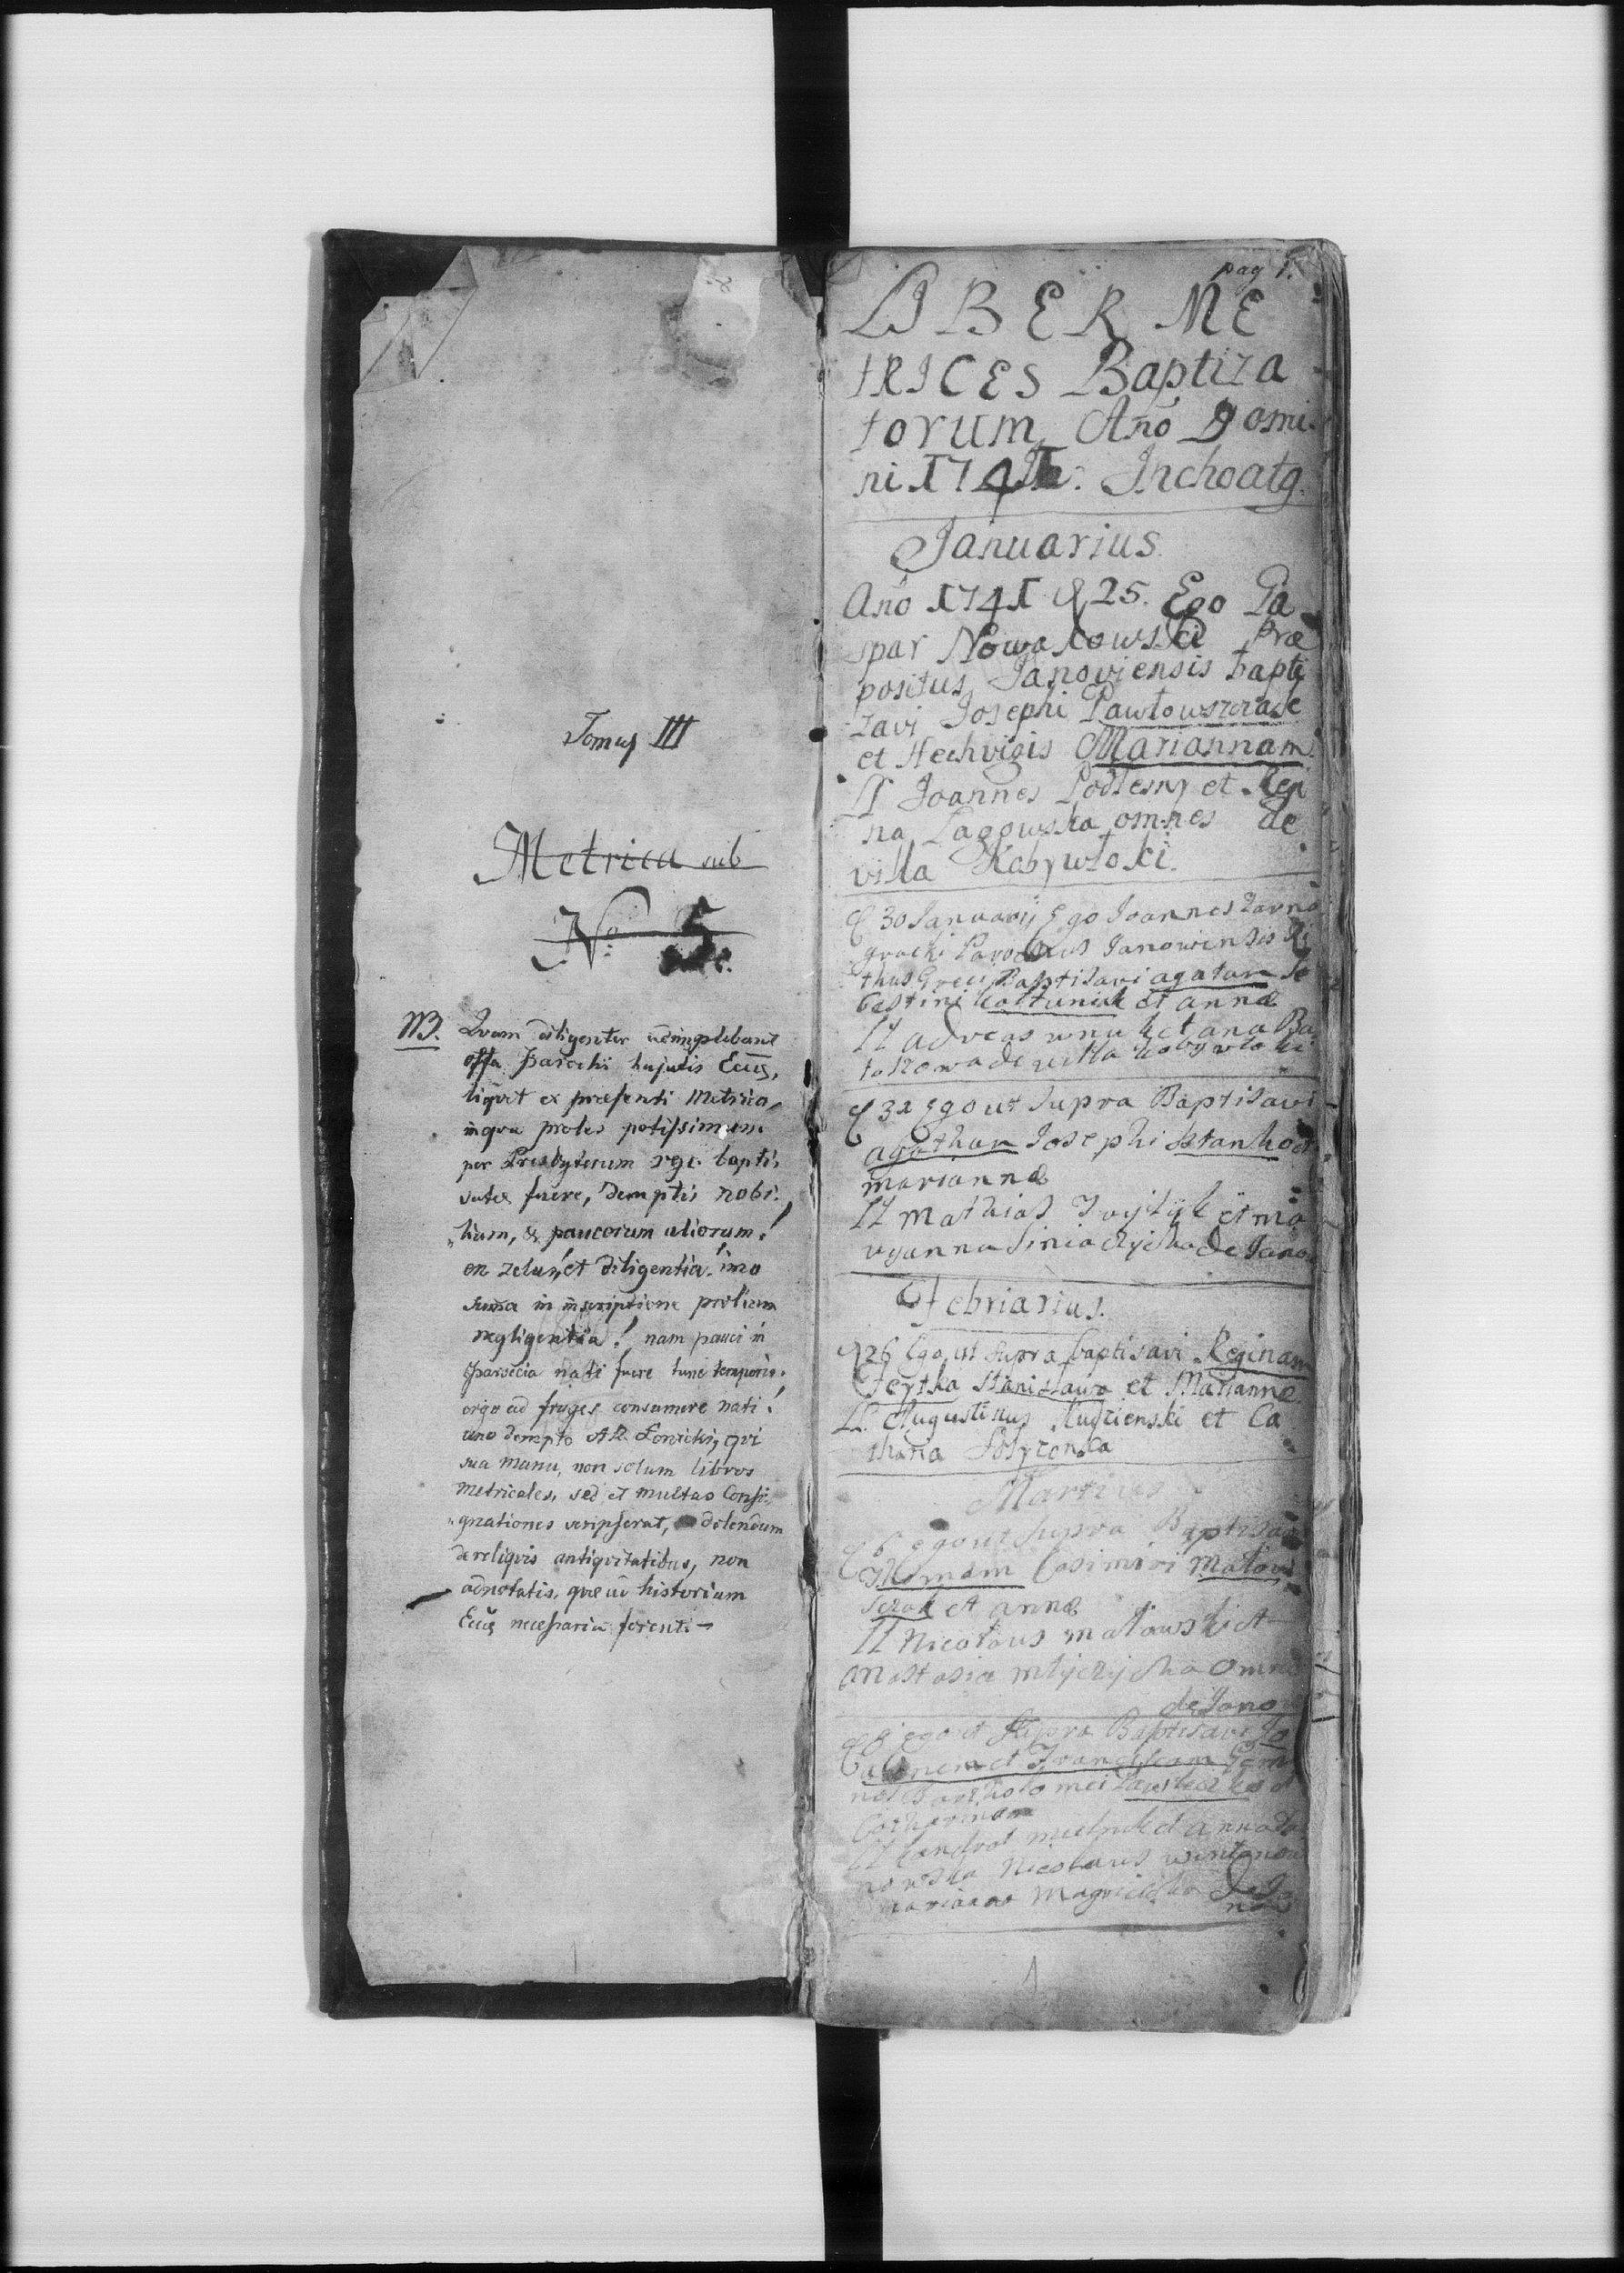 Tomus III
Metrica sub
No 5
NB. Quam diligenter adimplebant
offa Parochi hujatis Eccłæ,
liquet ex præsenti Metrica,
in qua proles potissimum
per Presbyterum rgc. bapti-
satæ fuere, demptis nobi-
lium, & paucorum aliorum!
en zelus, et diligentia! imo
suma in inscriptione prolium
negligentia! nam pauci in
Parœcia nati fuere tunc temporis.
ergo ad fruges consumere nati!
uno dempto AR. qui
sua manu, non solum libros
metricales, sed et multas Consi-
gnationes scripserat, dolendum
de reliquis antiquitatibus, non
adnotatis, quæ ad historiam
necessaria forent.
pag 1.
LIBER ME
TRICES Baptiza
torum Ano Domi
ni 1741. Inchoatg.
Januarius
Ano 1741 d 25. Ego Ga
spar Nowakowski Præ
positus Janoviensis bapti
zavi Josephi Pawłowszczak
et Hechvigis Mariannam.
LL Joannes Podlesny et Regi
na Lagowska omnes de
villa Kobywłoki.
d 30 Januarij Ego Joannes
Parochus Janowiensis Ri
thus Greci Baptisavi agatam Se
bastini kołtuniak et annæ
LL adreas wnuk et ana
de villa
d 31 Ego ut supra Baptisavi
agathan Josephi Stanko et
mariannæ
LL mathias et ma
ryanna de Jano
Febriarius.
d 26 Ego ut supra baptisavi Reginam
Feytka Stanisława et Mariannæ
LL. Augustinus Kudzienski et Ca
thaña
Martius
d 6 ego ut supra Baptisavi
Thomam Casimiri matow
sczak et annæ
LL Nicolaus matowski et
anastasia omnes
de Jano
d 8 ego ut Supra Baptisavi
et Franciscam Gem
nos Bartholomei et
Catharinæ
LL et anna
Nicolaus
marianna de Ja
now
1